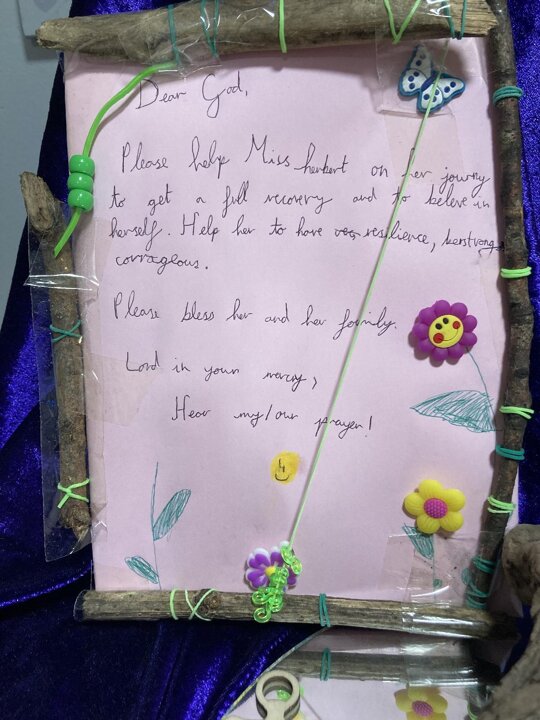 Dear God,
Please help Miss herbert on her journy
to get a full recovery and to beleve in
herself. Help her to have resilience, be strong,
corrageous.
Please bless her and her family.
Lord in your mercy,
Hear my/our prayer!